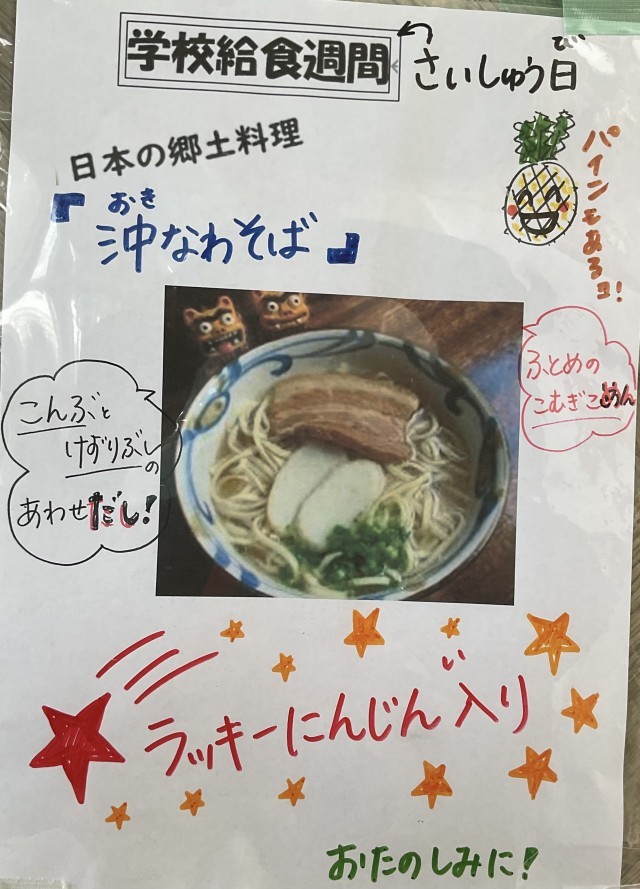 学校給食週間
さいしゅう日
び
日本の郷土料理
おき
『沖なわそば』
パインもあるヨ!
ふとめの
こむぎこめん
こんぶと
けずりぶしの
あわせだし!
い
ラッキーにんじん入り
おたのしみに!